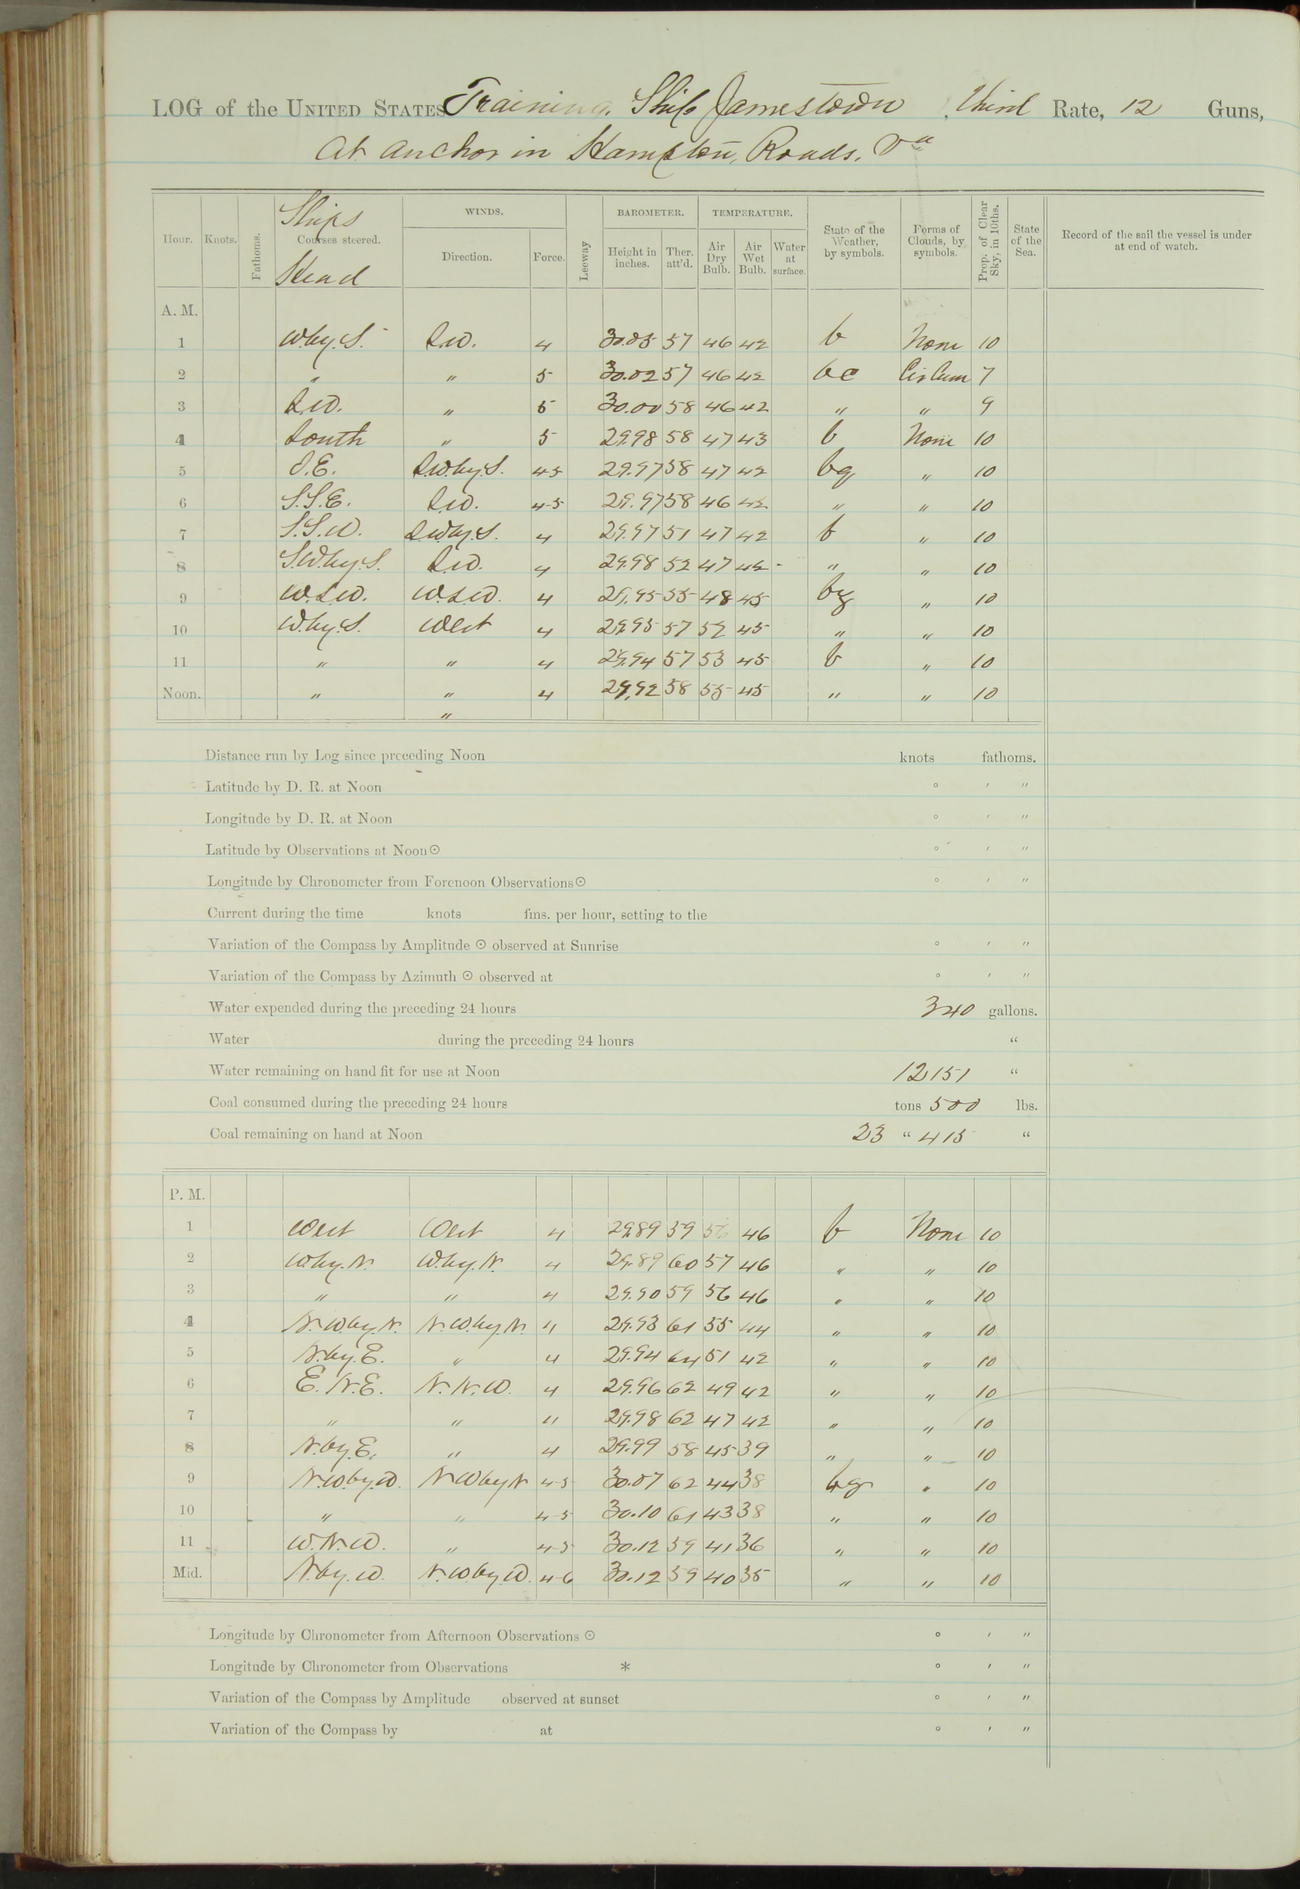 LOG of the UNITED STATES Training Ship Jamestown, third Rate, 12 Guns,
At anchor in Hampton, Roads. Va
Hour. Knots. Fathoms. Ships Courses steered. Head WINDS. Direction. Force. Leeway BAROMETER. Height in inches. Ther. att'd. TEMPERATURE. Air Dry Bulb. Air Wet Bulb. Water at surface. State of the Weather, by symbols. Forms of Clouds, by symbols. Prop. of Clear Sky, in 10ths. State of the Sea. Record of the sail the vessel is under at end of watch.
A. M.
1 W.by.S. S.W. 4 30.05 57 46 42 b None 10
2 " " 5 30.02 57 46 42 bc Cir Cum 7
3 S.W. " 5 30.00 58 46 42 " " 9
4 South " 5 29.98 58 47 43 b None 10
5 S.E. S.W.by.S. 4-5 29.97 58 47 42 bq " 10
6 S.S.E. S.W. 4-5 29.97 58 46 42 " " 10
7 S.S.W. S.W.by.S. 4 29.97 51 47 42 b " 10
8 S.W.by.S. S.W. 4 29.98 52 47 42 " " 10
9 W.S.W. W.S.W. 4 29.95 55 48 45 " 10
10 W.by.S. West 4 29.95 57 52 45 " " 10
11 " " 4 29.94 57 53 45 b " 10
Noon. " " 4 29.92 58 55 45 " " 10
"
Distance run by Log since preceding Noon knots fathoms.
Latitude by D. R. at Noon ° ' "
Longitude by D. R. at Noon ° ' "
Latitude by Observations at Noon ☉ ° ' "
Longitude by Chronometer from Forenoon Observations ☉ ° ' "
Current during the time knots fms. per hour, setting to the
Variation of the Compass by Amplitude ☉ observed at Sunrise ° ' "
Variation of the Compass by Azimuth ☉ observed at ° ' "
Water expended during the preceding 24 hours 340 gallons.
Water during the preceding 24 hours "
Water remaining on hand fit for use at Noon 12151 "
Coal consumed during the preceding 24 hours tons 500 lbs.
Coal remaining on hand at Noon 23 " 415 "
P. M.
1 West West 4 29.89 59 46 b None 10
2 W.by.N. W.by.N. 4 29.89 60 57 46 " " 10
3 " " 4 29.90 59 56 46 " " 10
4 N.W.by.N. N.W.by.N. " 29.93 61 55 44 " " 10
5 N.by.E. " 4 29.94 64 51 42 " " 10
6 E.N.E. N.N.W. 4 29.96 62 49 42 " " 10
7 " " " 29.98 62 47 42 " " 10
8 N.by.E. " 4 29.99 58 45 39 " " 10
9 N.W.by.W. N.W.by.N 4-5 30.07 62 44 38 bq " 10
10 " " 4-5 30.10 61 43 38 " " 10
11 W.N.W. " 4-5 30.12 59 41 36 " " 10
Mid. N.by.W. N.W.by.W. 4-6 30.12 59 40 35 " " 10
Longitude by Chronometer from Afternoon Observations ☉ ° ' "
Longitude by Chronometer from Observations * ° ' "
Variation of the Compass by Amplitude observed at sunset ° ' "
Variation of the Compass by at ° ' "